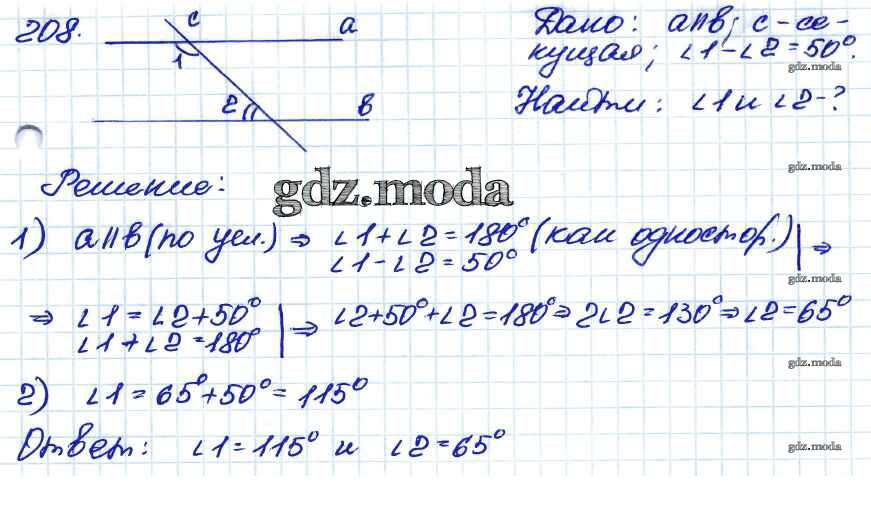 208.
c
a
1
2
b
Дано: a||b; c - се-
кущая; ∠1-∠2=50°.
gdz.moda
Найти: ∠1 и ∠2-?
gdz.moda
Решение:
gdz.moda
1) a||b (по усл.) ⇒ ∠1+∠2=180° (как одностор.)
∠1-∠2=50° | ⇒
gdz.moda
⇒ ∠1=∠2+50° | ⇒ ∠2+50°+∠2=180° ⇒ 2∠2=130° ⇒ ∠2=65°
∠1+∠2=180°
gdz.moda
2) ∠1=65°+50°=115°
Ответ: ∠1=115° и ∠2=65°
gdz.moda